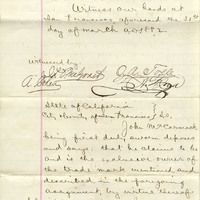 Witness our hands at
San Francisco aforesaid the 31st
day of March AD 1882.
Witnessed by
State of California
City & County of San Francisco } SS.
John McCormack
being first duly sworn deposes
and says, that he claims to be
and is the exclusive owner of
the trade mark mentioned, and
described in the foregoing
assignment, by virtue thereof